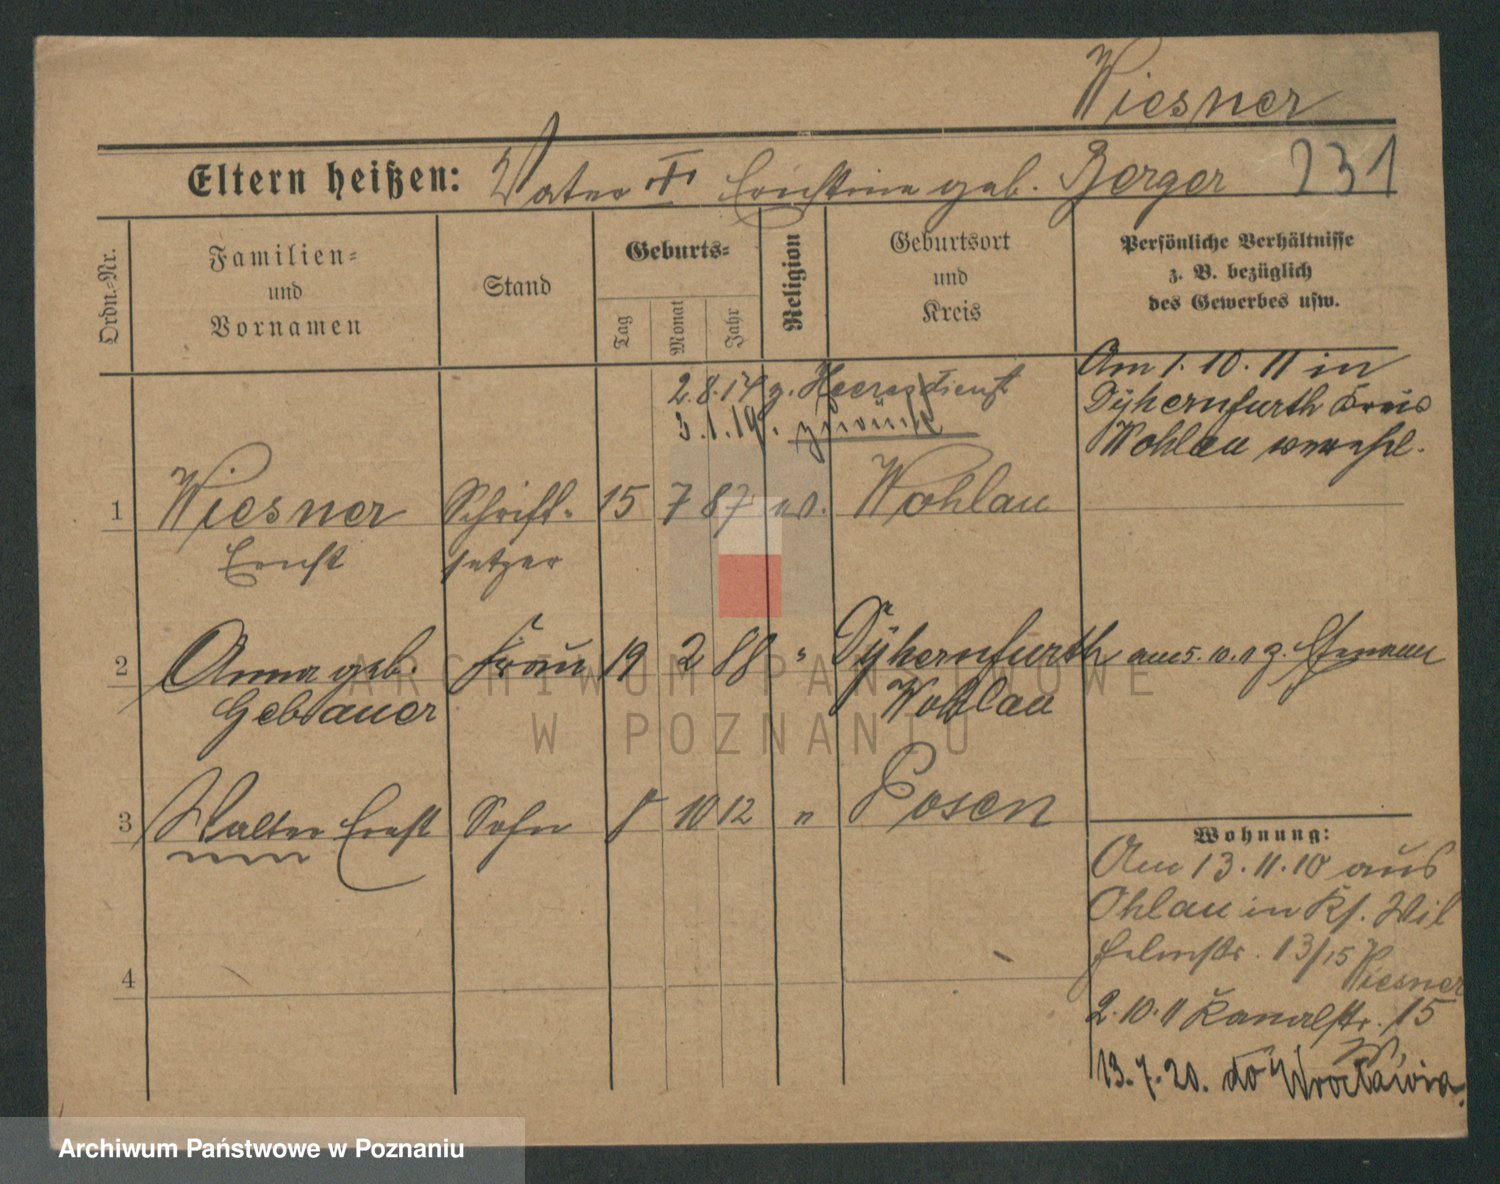 Wiesner
Eltern heißen: Vater † Ernstine geb. Berger 231
Ordn.-Nr.
Familien-
und
Vornamen
Stand
Geburts-
Tag
Monat
Jahr
Religion
Geburtsort
und
Kreis
Persönliche Verhältnisse
z. B. bezüglich
des Gewerbes usw.
2.8.14 z. Heeresdienst
3.1.19. zurück
Am 1.10.11 in
Dyhernfurth Kreis
Wohlau verehel.
1 Wiesner Schrift- 15 7 87 ev. Wohlau
Ernst setzer
2 Anna geb. Frau 19 2 88 " Dyhernfurth am 5.10.11 z. Ehemann
Gebauer Wohlau
3 Walter Ernst Sohn 8 10 12 " Posen
4
Wohnung:
Am 13.11.10 aus
Ohlau in Ks. Wil
helmstr. 13/15 Wiesner
2.10.11 Kanalstr. 15
13.7.20. do Wrocławia.
ARCHIWUM PAŃSTWOWE
W POZNANIU
Archiwum Państwowe w Poznaniu